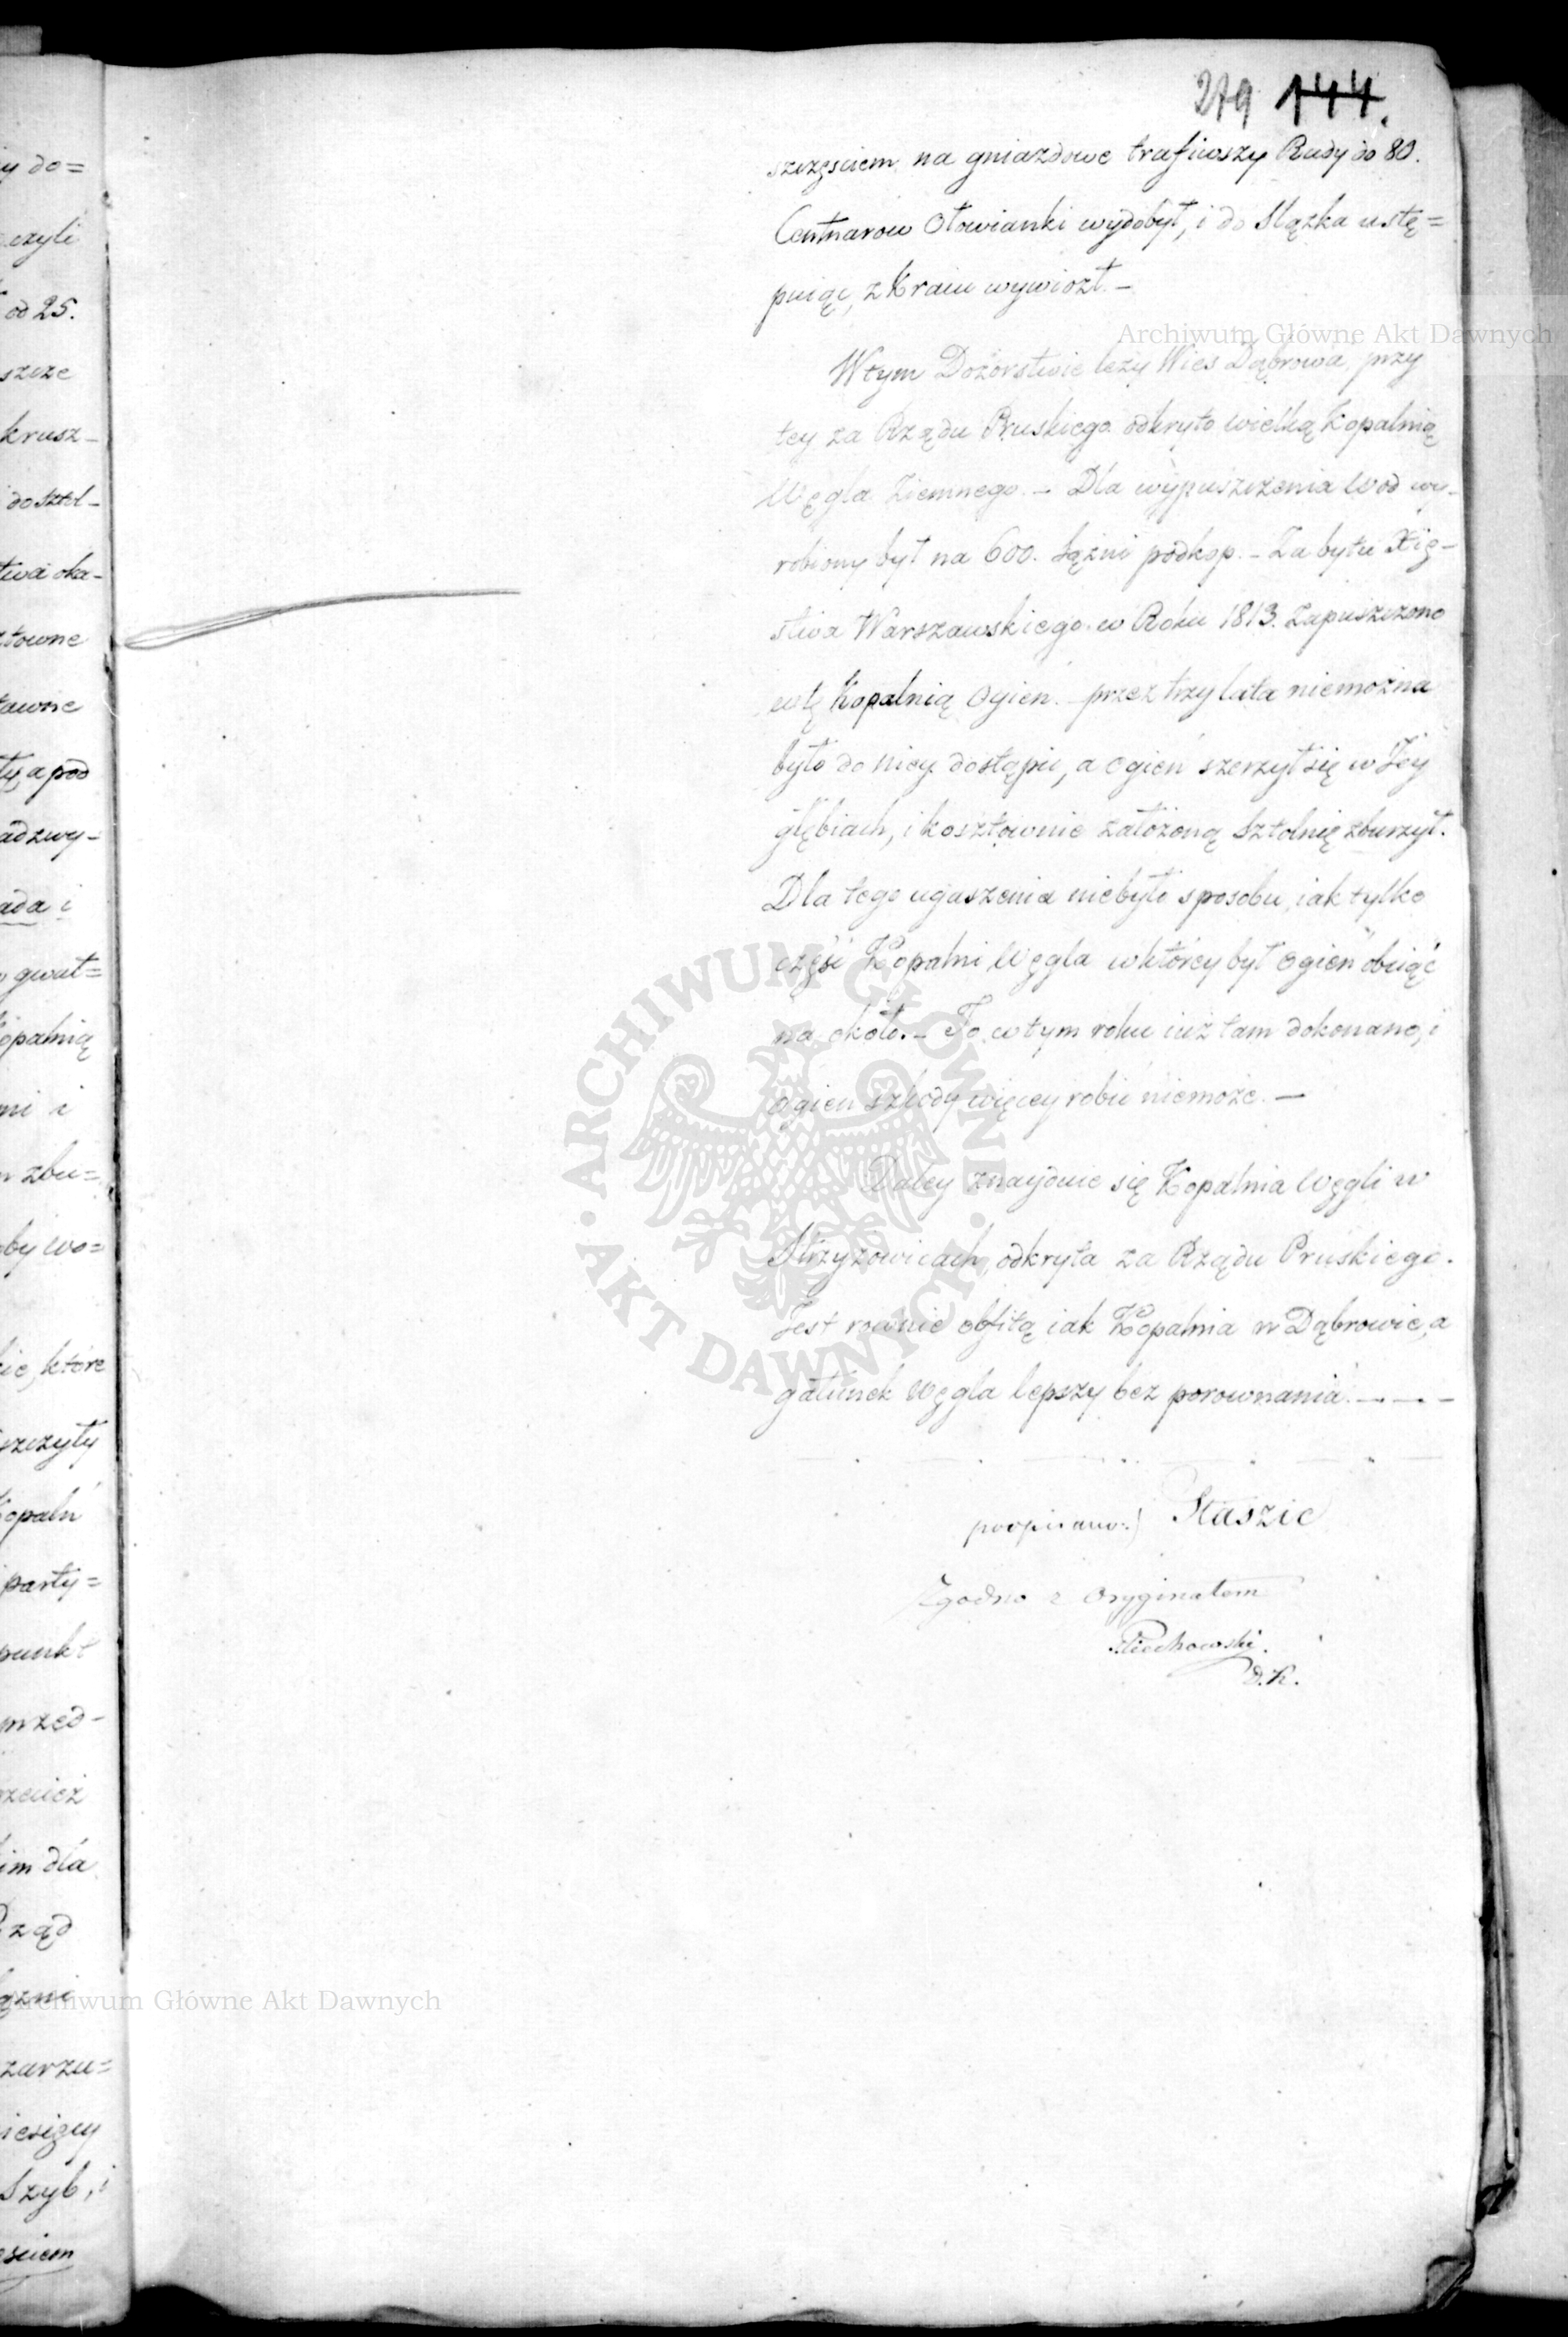 279 144.
szczęsciem na gniazdowe trafiwszy Rudy do 80.
Centnarow Ołowianki wydobył, i do Slązka ustę=
puiąc, z Kraiu wywiozł. –
W tym Dozorstwie leży Wies Dąbrowa, przy
tey za Rządu Pruskiego odkryto wielką Kopalnią
Węgla Ziemnego. – Dla wypuszczenia Wod wy-
robiony był na 600. Sążni podkop. – Za bytu Xię-
stwa Warszawskiego w Roku 1813. Zapuszczono
w tę Kopalnią Ogien. przez trzy lata niemożna
było do niey dostąpić, a Ogień szerzył się w Jey
głębiach, i kosztownie założoną Sztolnię zburzył.
Dla tego ugaszenia niebyło sposobu, iak tylko
część Kopalni Węgla w którey był Ogień obiąć
na około. – To w tym roku iuż tam dokonano, i
Ogien szkody więcey robić niemoże. –
Daley znayduie się Kopalnia Węgli w
Strzyzowicach, odkryta za Rządu Pruskiego.
Jest rownie obfitą iak Kopalnia w Dąbrowie, a
gatunek Węgla lepszy bez porownania. – – –
podpisano:) Staszic
Zgodno z Oryginałem
Piechowski.
D.K.
y do=
czyli
od 25.
szcze
krusz-
do sztol-
twa oka-
townе
tawne
tę, a pod
adzwy-
ada i
gwał=
opalnią
mi i
zbu=
by wo=
kie, które
szczyty
Kopalń
party=
punkt
przed-
im dla
Rząd
zarzu=
Szyb, i
sciem
Archiwum Główne Akt Dawnych
Archiwum Główne Akt Dawnych
ARCHIWUM GŁÓWNE
AKT DAWNYCH